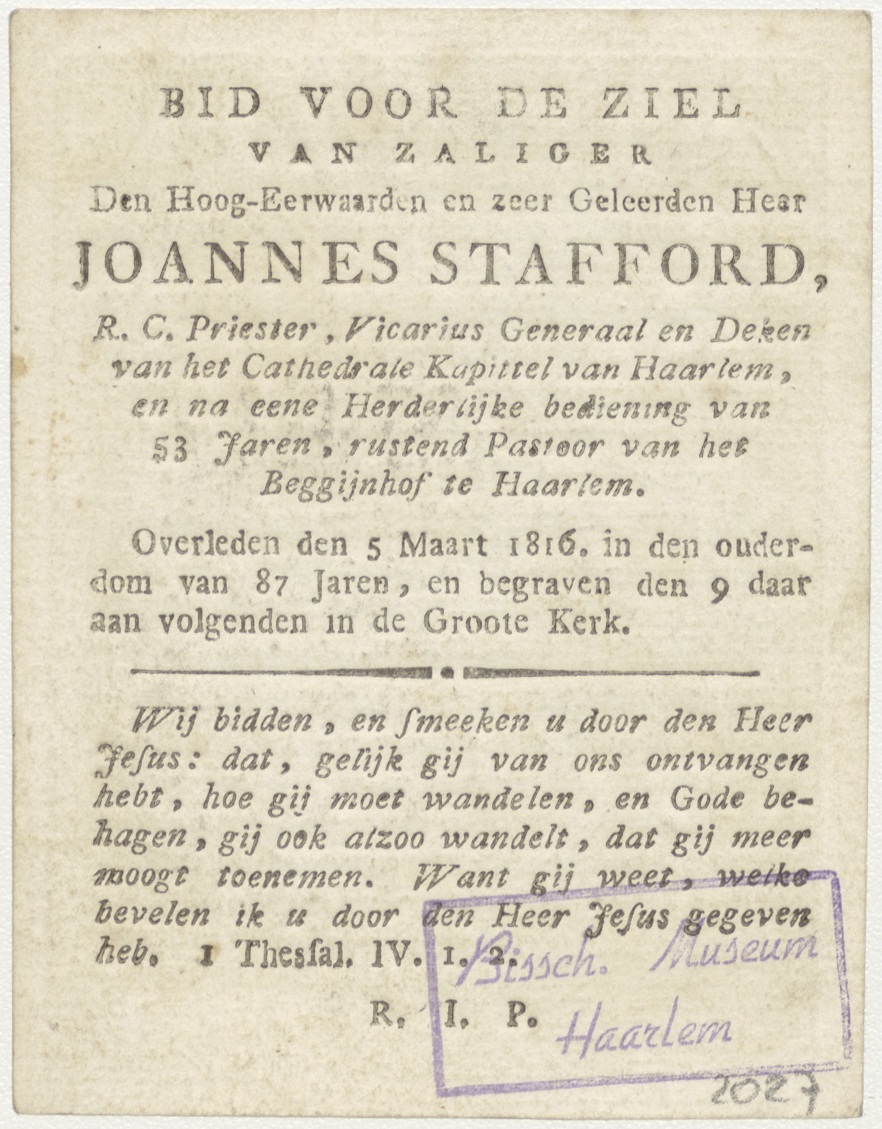 BID VOOR DE ZIEL
VAN ZALIGER
Den Hoog-Eerwaarden en zeer Geleerden Heer
JOANNES STAFFORD,
R. C. Priester, Vicarius Generaal en Deken
van het Cathedrale Kapittel van Haarlem,
en na eene Herderlijke bediening van
53 Jaren, rustend Pastoor van het
Beggijnhof te Haarlem.
Overleden den 5 Maart 1816. in den ouder-
dom van 87 Jaren, en begraven den 9 daar
aan volgenden in de Groote Kerk.
Wij bidden, en ſmeeken u door den Heer
Jeſus: dat, gelijk gij van ons ontvangen
hebt, hoe gij moet wandelen, en Gode be-
hagen, gij ook alzoo wandelt, dat gij meer
moogt toenemen. Want gij weet, welke
bevelen ik u door den Heer Jeſus gegeven
heb. 1 Thesſal. IV. 1. 2.
R. I. P.
Bissch. Museum
Haarlem
2027